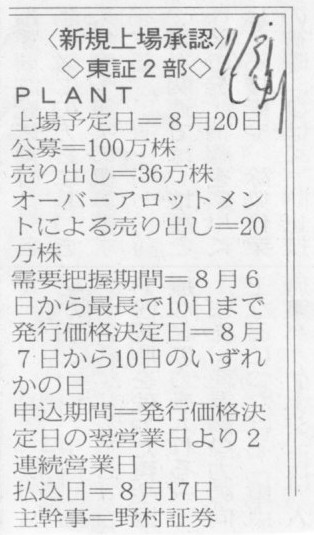 〈新規上場承認〉
◇東証2部◇
PLANT
上場予定日＝8月20日
公募＝100万株
売り出し＝36万株
オーバーアロットメン
トによる売り出し＝20
万株
需要把握期間＝8月6
日から最長で10日まで
発行価格決定日＝8月
7日から10日のいずれ
かの日
申込期間＝発行価格決
定日の翌営業日より2
連続営業日
払込日＝8月17日
主幹事＝野村証券